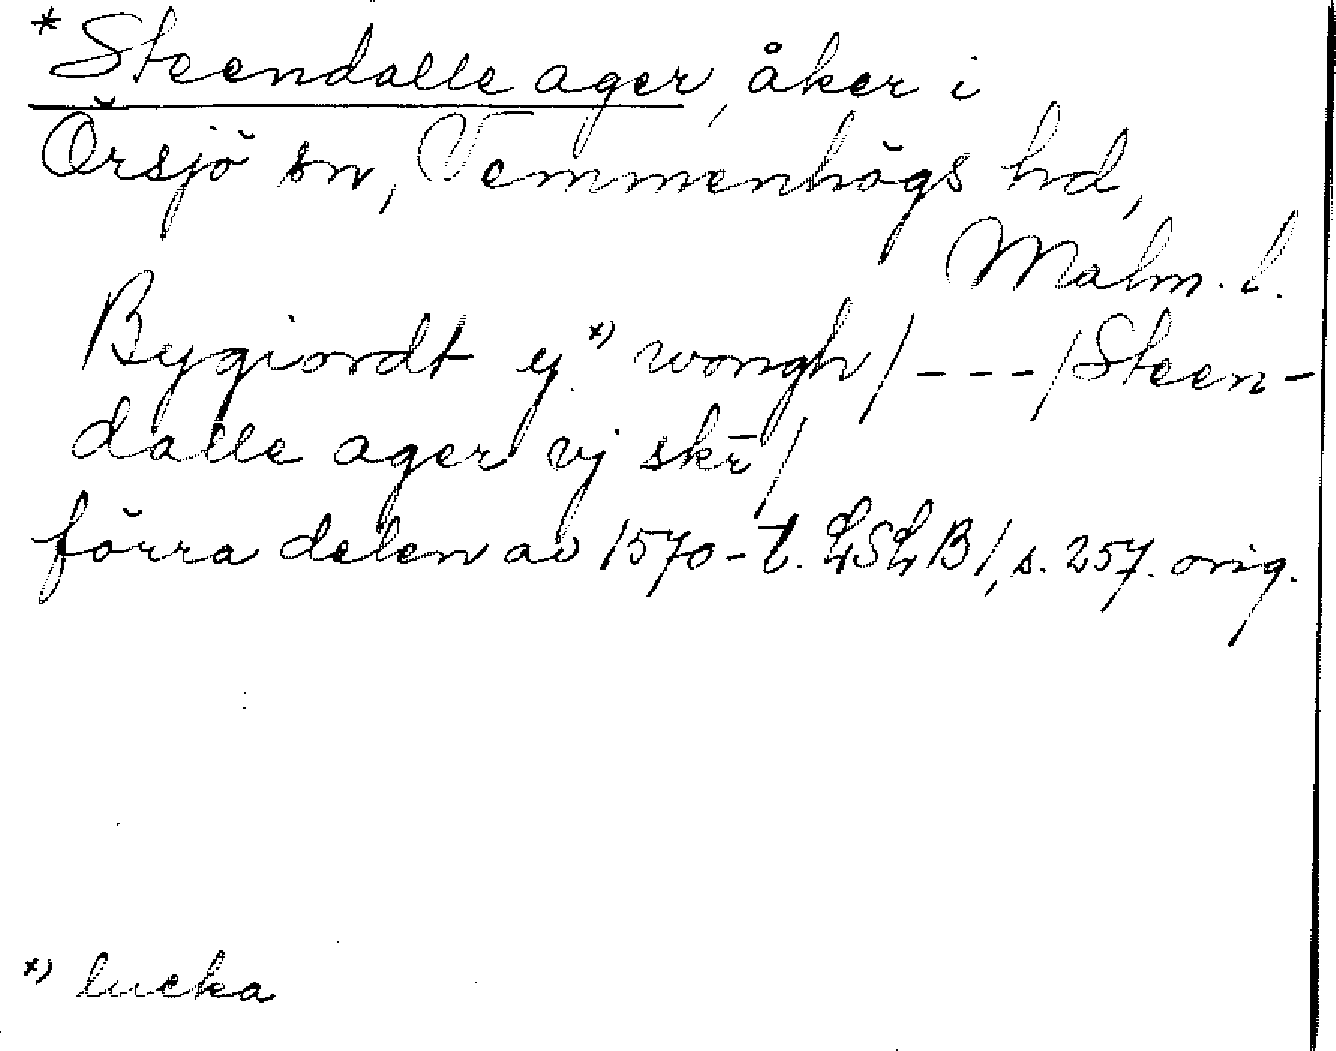 *Steendalle ager, åker i
Örsjö sn, Vemmenhögs hd,
Malm. l.
Bygiordt ej *) wongh / - - - / Steen-
dalle ager vj skē /
förra delen av 1570-t. LSLB1, s. 257. orig.
*) lucka